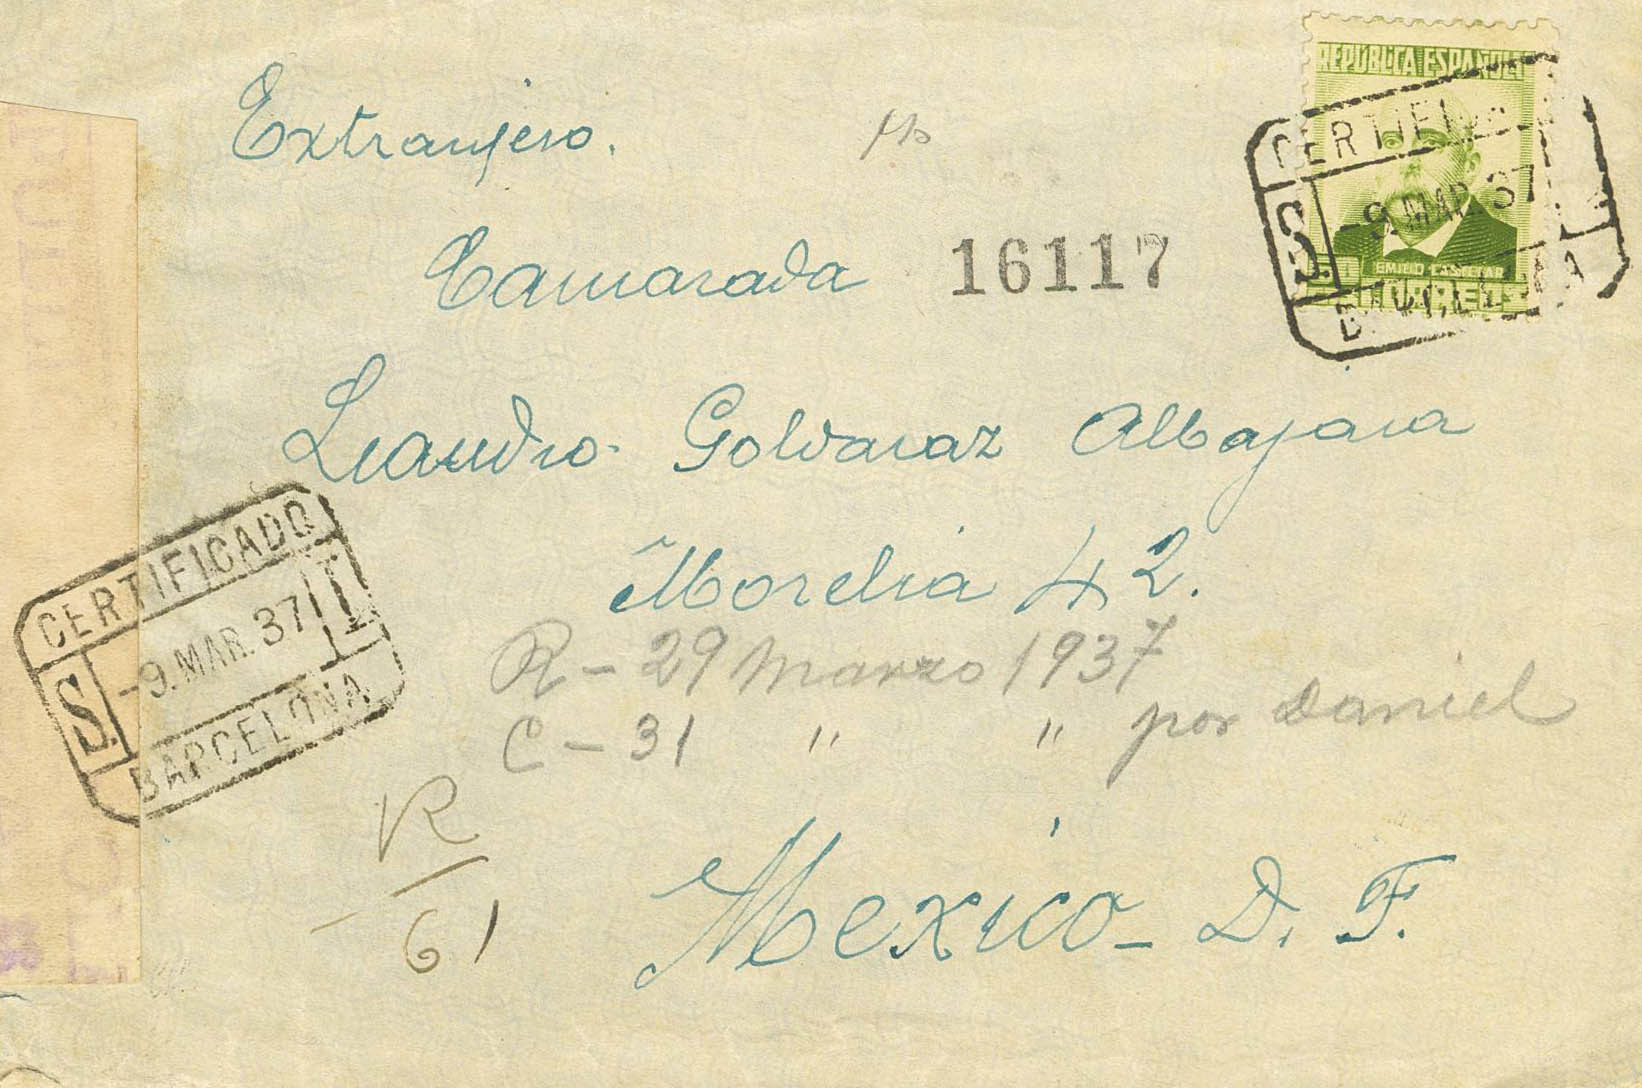 REPÚBLICA ESPAÑOLA
Extranjero.
CERTIFICADO
S. -9. MAR. 37
EMILIO CASTELAR
CORREOS
BARCELONA
Camarada 16117
Leandro Goldaraz Albajara
Morelia 42.
CERTIFICADO
S. -9. MAR. 37 T
BARCELONA
R - 29 Marzo 1937
C - 31 " " por Daniel
R
61
Mexico - D. F.